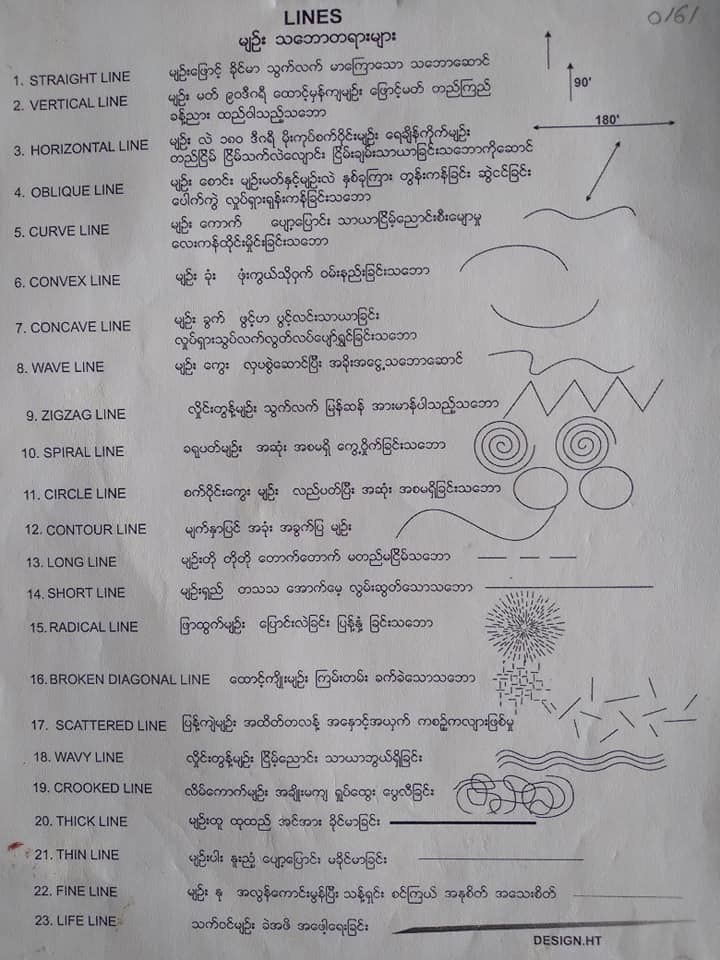 LINES
0161
မျဉ်း သဘောတရားများ
1. STRAIGHT LINE မျဉ်းဖြောင့် ခိုင်မာ သွက်လက် မာကြောသော သဘောဆောင်
2. VERTICAL LINE မျဉ်း မတ် ၉၀ဒီဂရီ ထောင့်မှန်ကျမျဉ်း ဖြောင့်မတ် တည်ကြည်
ခန့်ညား ထည်ဝါသည့်သဘော
90'
3. HORIZONTAL LINE မျဉ်း လဲ ၁၈၀ ဒီဂရီ မိုးကုပ်စက်ဝိုင်းမျဉ်း ရေချိန်ကိုက်မျဉ်း
180'
တည်ငြိမ် ငြိမ်သက်လဲလျောင်း ငြိမ်းချမ်းသာယာခြင်းသဘောကိုဆောင်
4. OBLIQUE LINE မျဉ်း စောင်း မျဉ်းမတ်နှင့်မျဉ်းလဲ နှစ်ခုကြား တွန်းကန်ခြင်း ဆွဲငင်ခြင်း
ပေါက်ကွဲ လှုပ်ရှားရုန်းကန်ခြင်းသဘော
5. CURVE LINE မျဉ်း ကောက် ပျော့ပြောင်း သာယာငြိမ့်ညောင်းစီးမျောမှု
လေးကန်ထိုင်းမှိုင်းခြင်းသဘော
6. CONVEX LINE မျဉ်း ခုံး ဖုံးကွယ်သိုဝှက် ဝမ်းနည်းခြင်းသဘော
7. CONCAVE LINE မျဉ်း ခွက် ဖွင့်ဟ ပွင့်လင်းသာယာခြင်း
လှုပ်ရှားသွပ်လက်လွတ်လပ်ပျော်ရွှင်ခြင်းသဘော
8. WAVE LINE မျဉ်း ကွေး လှပစွဲဆောင်ပြီး အခိုးအငွေ့သဘောဆောင်
9. ZIGZAG LINE လှိုင်းတွန့်မျဉ်း သွက်လက် မြန်ဆန် အားမာန်ပါသည့်သဘော
10. SPIRAL LINE ခရုပတ်မျဉ်း အဆုံး အစမရှိ ကွေ့ဝိုက်ခြင်းသဘော
11. CIRCLE LINE စက်ဝိုင်းကွေး မျဉ်း လည်ပတ်ပြီး အဆုံး အစမရှိခြင်းသဘော
12. CONTOUR LINE မျက်နှာပြင် အခုံး အခွက်ပြ မျဉ်း
13. LONG LINE မျဉ်းတို တိုတို တောက်တောက် မတည်မငြိမ်သဘော
14. SHORT LINE မျဉ်းရှည် တသသ အောက်မေ့ လွမ်းဆွတ်သောသဘော
15. RADICAL LINE ဖြာထွက်မျဉ်း ပြောင်းလဲခြင်း ပြန့်နှံ့ ခြင်းသဘော
16. BROKEN DIAGONAL LINE ထောင့်ကျိုးမျဉ်း ကြမ်းတမ်း ခက်ခဲသောသဘော
17. SCATTERED LINE ပြန့်ကျဲမျဉ်း အထိတ်တလန့် အနှောင့်အယှက် ကစဉ့်ကလျားဖြစ်မှု
18. WAVY LINE လှိုင်းတွန့်မျဉ်း ငြိမ့်ညောင်း သာယာဘွယ်ရှိခြင်း
19. CROOKED LINE လိမ်ကောက်မျဉ်း အချိုးမကျ ရှုပ်ထွေး ပွေလီခြင်း
20. THICK LINE မျဉ်းထူ ထုထည် အင်အား ခိုင်မာခြင်း
21. THIN LINE မျဉ်းပါး နူးညံ့ ပျော့ပြောင်း မခိုင်မာခြင်း
22. FINE LINE မျဉ်း နု အလွန်ကောင်းမွန်ပြီး သန့်ရှင်း စင်ကြယ် အနုစိတ် အသေးစိတ်
23. LIFE LINE သက်ဝင်မျဉ်း ခဲအဖိ အဖေါ့ရေးခြင်း
DESIGN.HT